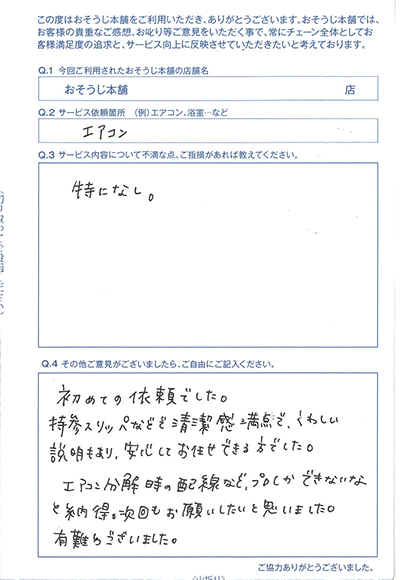 この度はおそうじ本舗をご利用いただき、ありがとうございます。おそうじ本舗では、
お客様の貴重なご感想、お叱り等ご意見をいただく事で、常にチェーン全体としてお
客様満足度の追求と、サービス向上に反映させていただきたいと考えております。
Q.1 今回ご利用されたおそうじ本舗の店舗名
おそうじ本舗 店
Q.2 サービス依頼箇所 (例)エアコン、浴室…など
エアコン
Q.3 サービス内容について不満な点、ご指摘があれば教えてください。
特になし。
Q.4 その他ご意見がございましたら、ご自由にご記入ください。
初めての依頼でした。
持参スリッパなどで清潔感満点で、くわしい
説明もあり、安心してお任せできる方でした。
エアコン分解時の配線など、プロしかできないな
と納得。次回もお願いしたいと思いました。
有難うございました。
ご協力ありがとうございました。